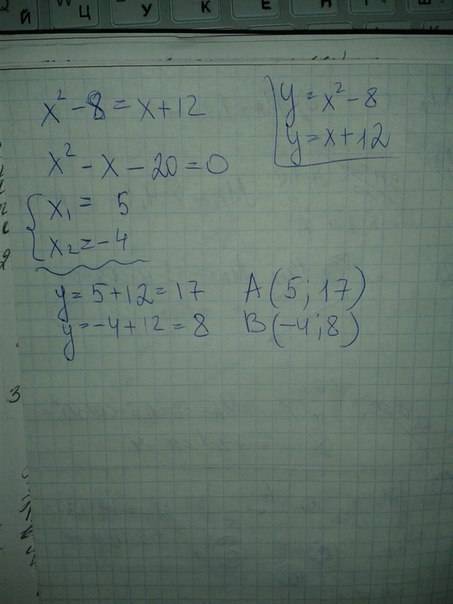 Й Ц У К Е Н Г
x² - 8 = x + 12
y = x² - 8
y = x + 12
x² - x - 20 = 0
x₁ = 5
x₂ = -4
y = 5 + 12 = 17 A (5; 17)
y = -4 + 12 = 8 B (-4; 8)
3